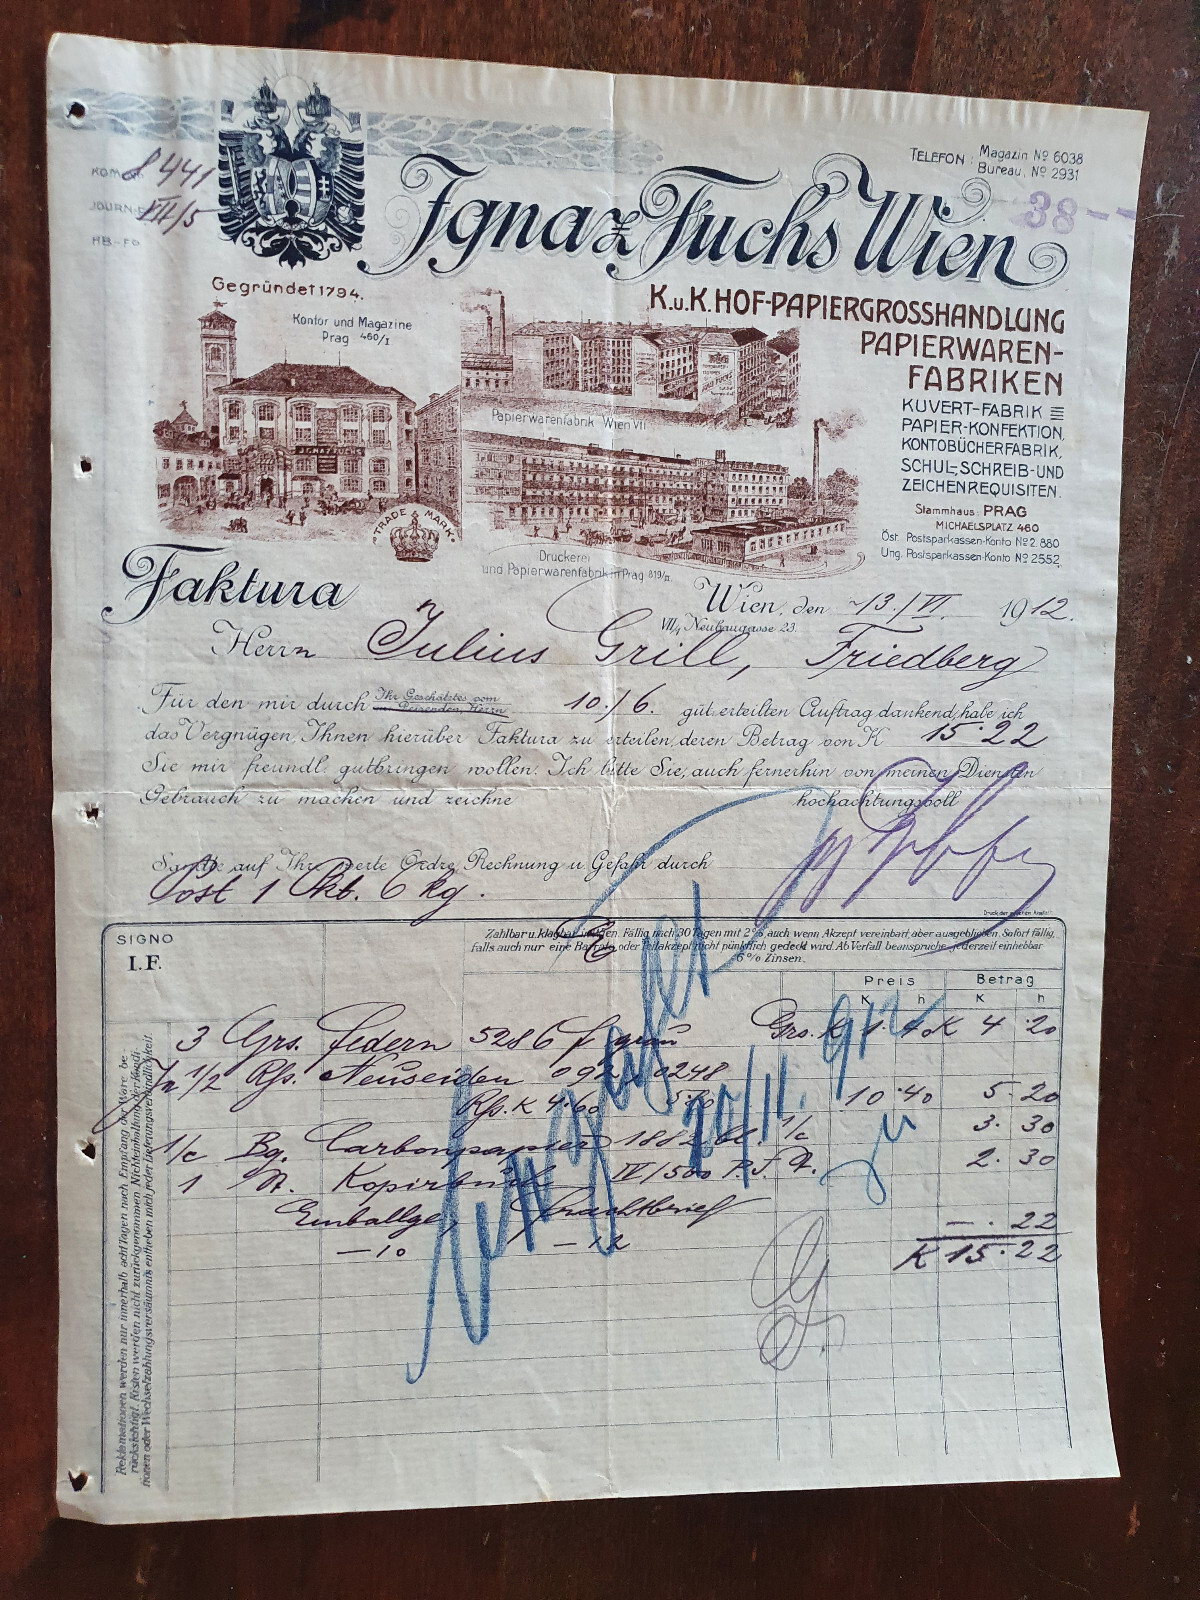 TELEFON: Magazin No 6038
Bureau. No 2931
8441
JOURN.
VII/5
HB-Fo
38--
Ignaz Fuchs Wien
Gegründet 1794.
K.u.K. HOF-PAPIERGROSSHANDLUNG
PAPIERWAREN-
FABRIKEN
KUVERT-FABRIK
PAPIER-KONFEKTION,
KONTOBÜCHERFABRIK,
SCHUL-, SCHREIB- UND
ZEICHENREQUISITEN.
Stammhaus: PRAG
MICHAELSPLATZ 460
Öst. Postsparkassen-Konto No 2.880
Ung. Postsparkassen-Konto No 2552.
Kontor und Magazine
Prag 460/I
IGNAZ FUCHS
Papierwarenfabrik Wien VII
TRADE & MARK
Druckerei
und Papierwarenfabrik in Prag 819/II.
Faktura
Wien, den 13./VI. 1912.
VII/1 Neubaugasse 23.
Herrn Julius Grill, Friedberg
Für den mir durch Ihr Geschätztes vom 10./6. güt. erteilten Auftrag dankend, habe ich
das Vergnügen, Ihnen hierüber Faktura zu erteilen, deren Betrag von K 15.22
Sie mir freundl. gutbringen wollen. Ich bitte Sie, auch fernerhin von meinen Diensten
Gebrauch zu machen und zeichne hochachtungsvoll
Sandte auf Ihre werte Ordre, Rechnung u. Gefahr durch
Post 1 Pkt. 6 kg.
SIGNO
I.F.
Zahlbar u. klagbar in Wien. Fällig nach 30 Tagen mit 2% auch wenn Akzept vereinbart, aber ausgeblieben. Sofort fällig,
falls auch nur eine Barrate oder Teilakzept nicht pünktlich gedeckt wird. Ab Verfall beanspruche jederzeit einhebbar
6% Zinsen.
Preis Betrag
K h K h
3 Grs. Federn 5286 f grau Grs. K 1.40 K 4.20
1/2 Rss. Neuseiden 092 0248
Rss. K 4.60 5.80 10.40 5.20
1/c Bg. Carbonpapier 1882 bl. 1/c 3.30
1 St. Kopirbuch IV/500 P.F. St. 2.30
Emballage, Frachtbrief
—10 —12 —.22
K 15.22
20/11. 912
Reklamationen werden nur innerhalb acht Tagen nach Empfang der Ware be-
rücksichtigt. Kisten werden nicht zurückgenommen. Nichteinhaltung der Kondi-
tionen oder Wechselzahlungsversäumnis entheben mich jeder Lieferungsverbindlichkeit.